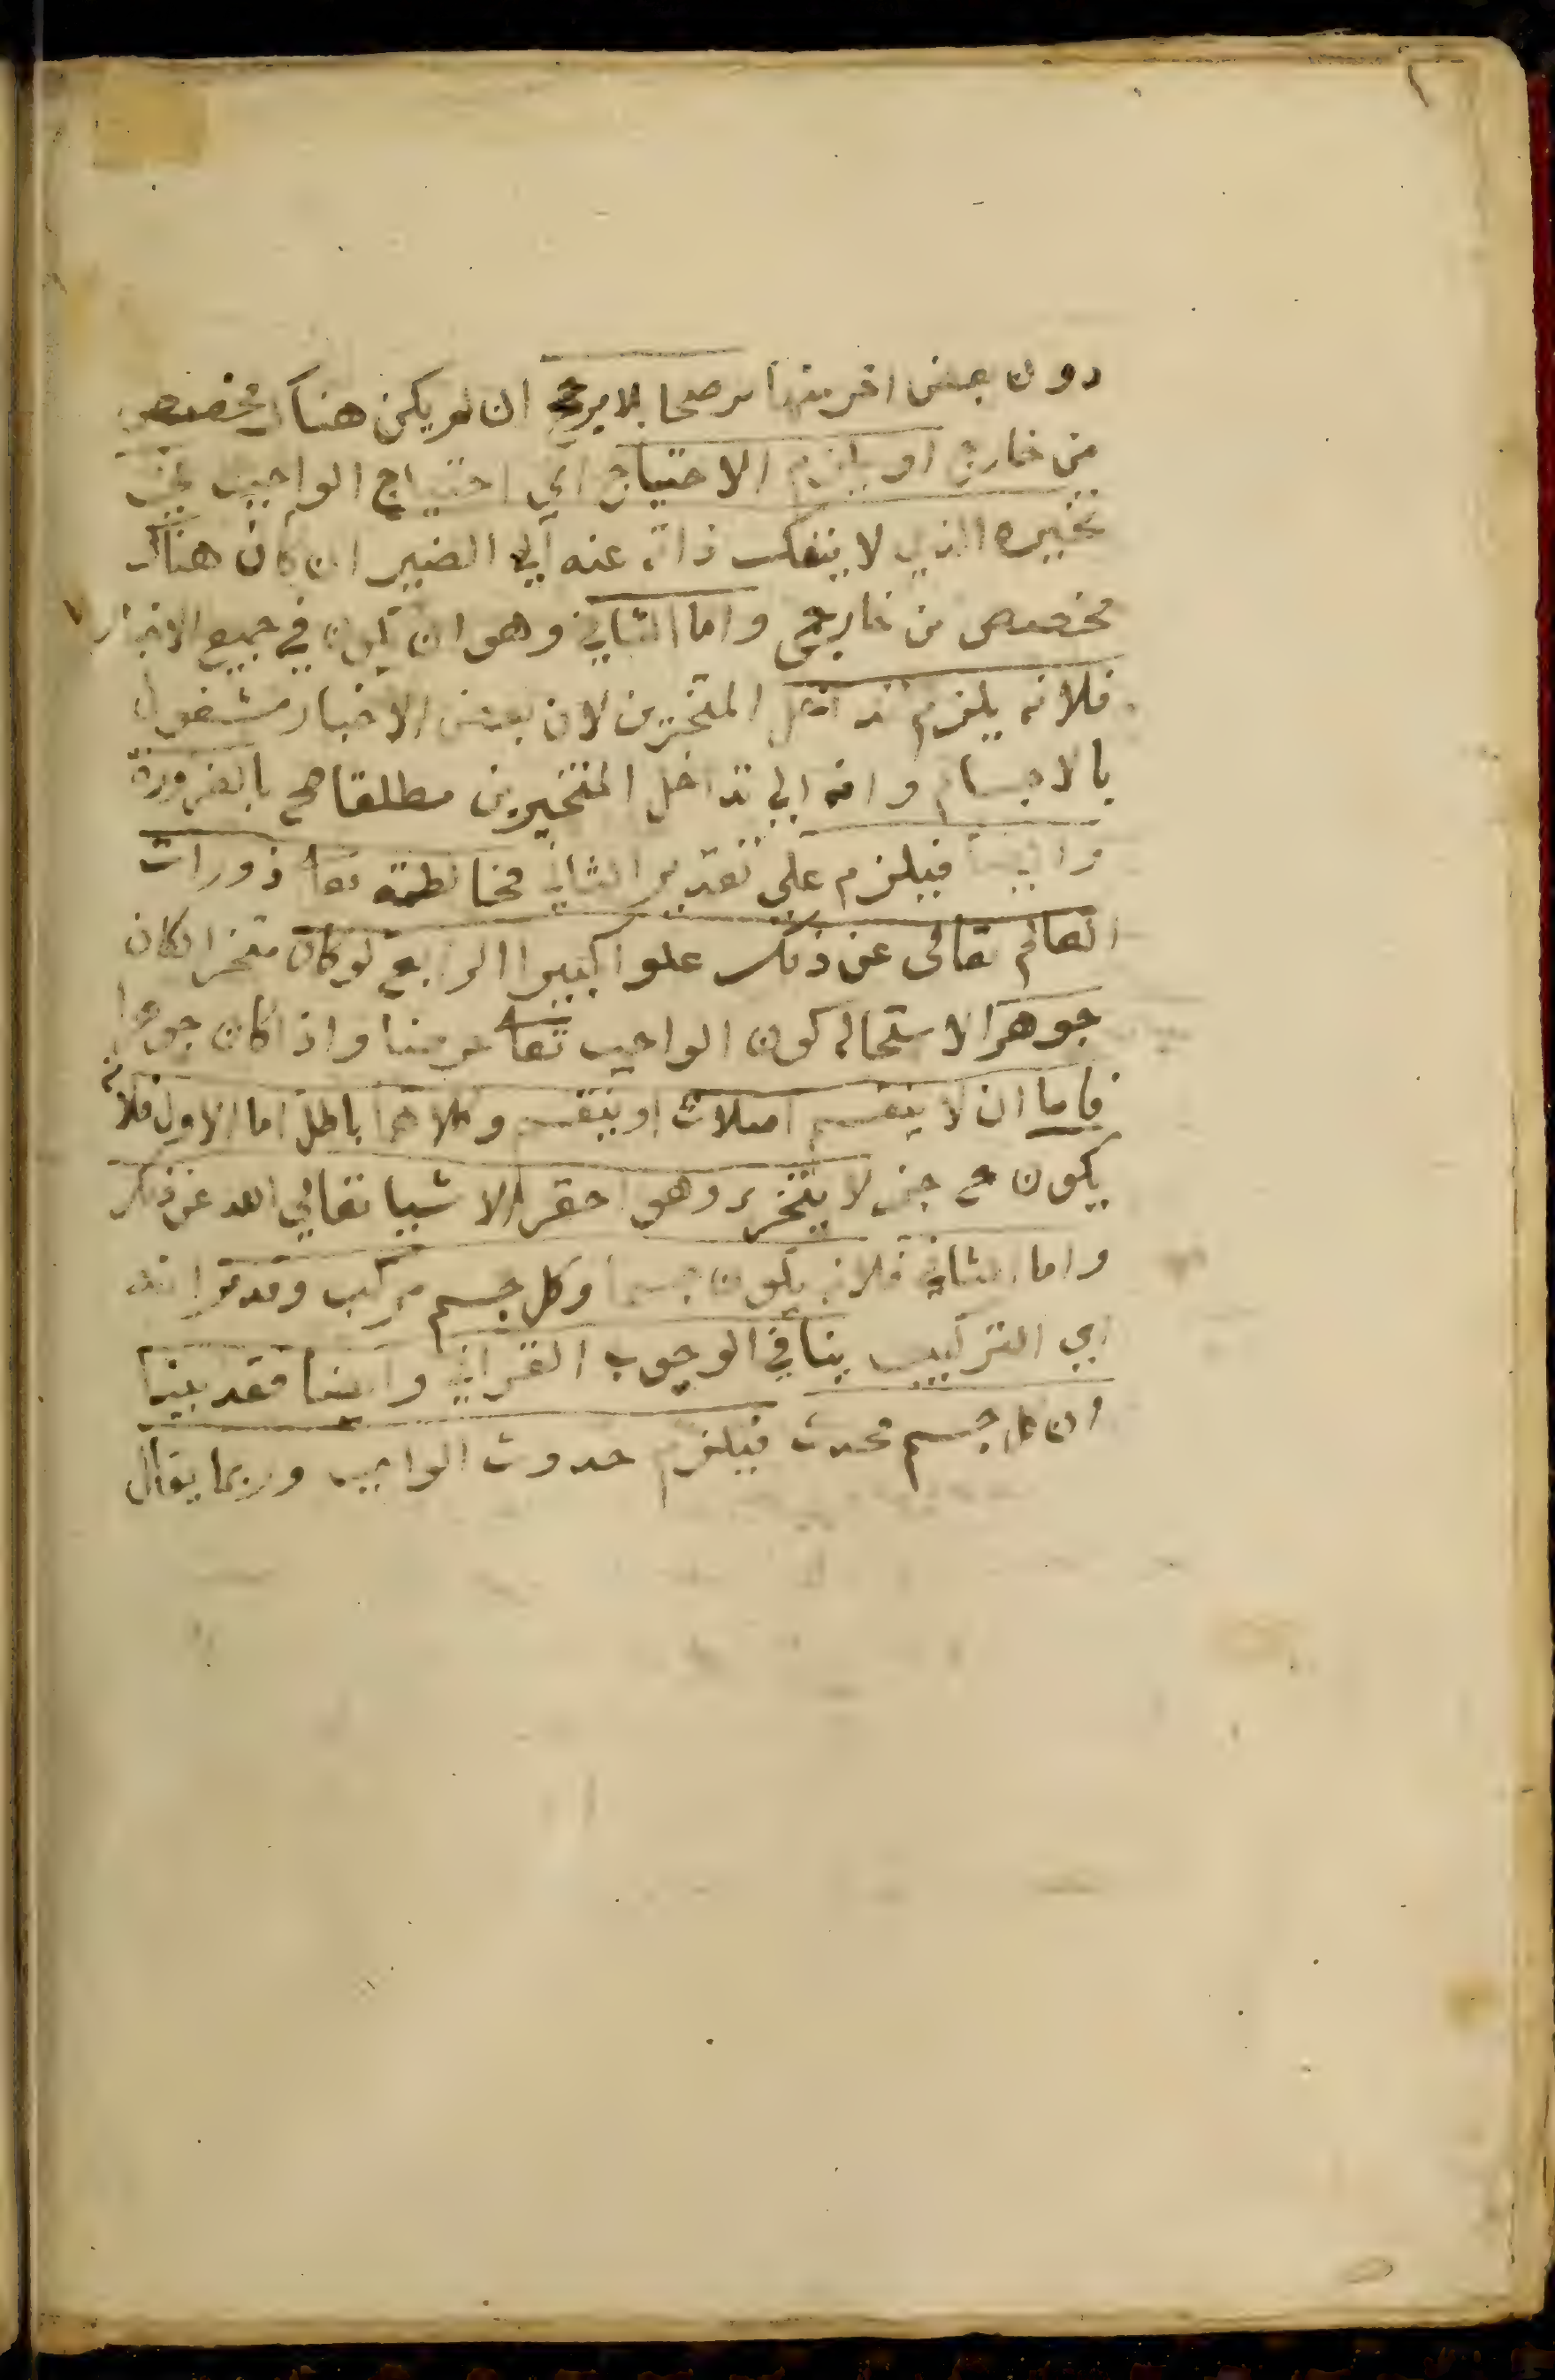 ٣
دون بعض اخر منها مرجحا بلا مرجح ان لم يكن هناك مخصص
من خارج او يلزم الاحتياج اي احتياج الواجب في
تحيزه الذي لا ينفك ذاته عنه الي الغير ان كان هناك
مخصص من خارج واما الثاني وهو ان يكون في جميع الاحياز
فلانه يلزم تداخل المتحيزين لان بعض الاحياز مشغول
بالاجسام وانه اي تداخل المتحيزين مطلقا مح بالضرورة
وايضا فيلزم علي تقدير الثاني مخالطته تعا قاذورات
العالم تعالى عن ذلك علوا كبيرا الرابع لو كان متحيزا لكان
جوهرا لاستحالة كون الواجب تعا عرضا واذا كان جوهرا
فاما ان لا ينقسم اصلا او ينقسم وكلاهما باطل اما الاول فلانه
يكون ح جزا لا يتجزء وهو احقر الاشيا تعالي الله عن ذلك
واما الثاني فلانه يكون جسما وكل جسم مركب وقد مر انه
اي التركيب ينافي الوجوب الذاتي وايضا فقد بينا
ان كل جسم محدث فيلزم حدوث الواجب وربما يقال